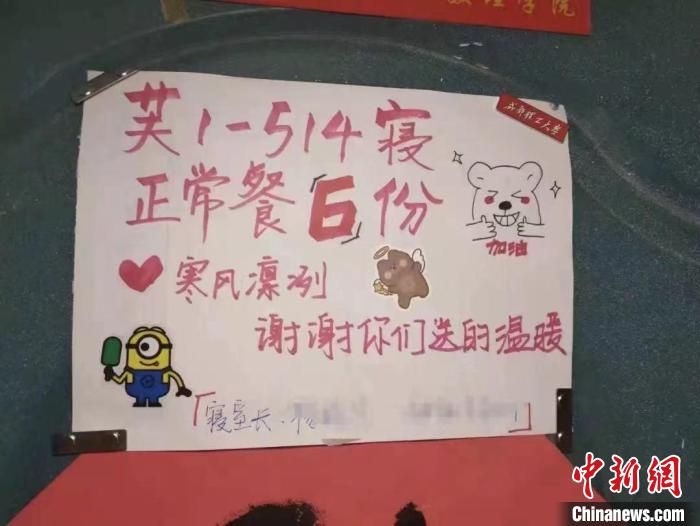 理学院
成都理工大学
芙1-514寝
正常餐「6」份
加油
寒风凛冽
谢谢你们送的温暖
「寝室长.
」
中新网
Chinanews.com